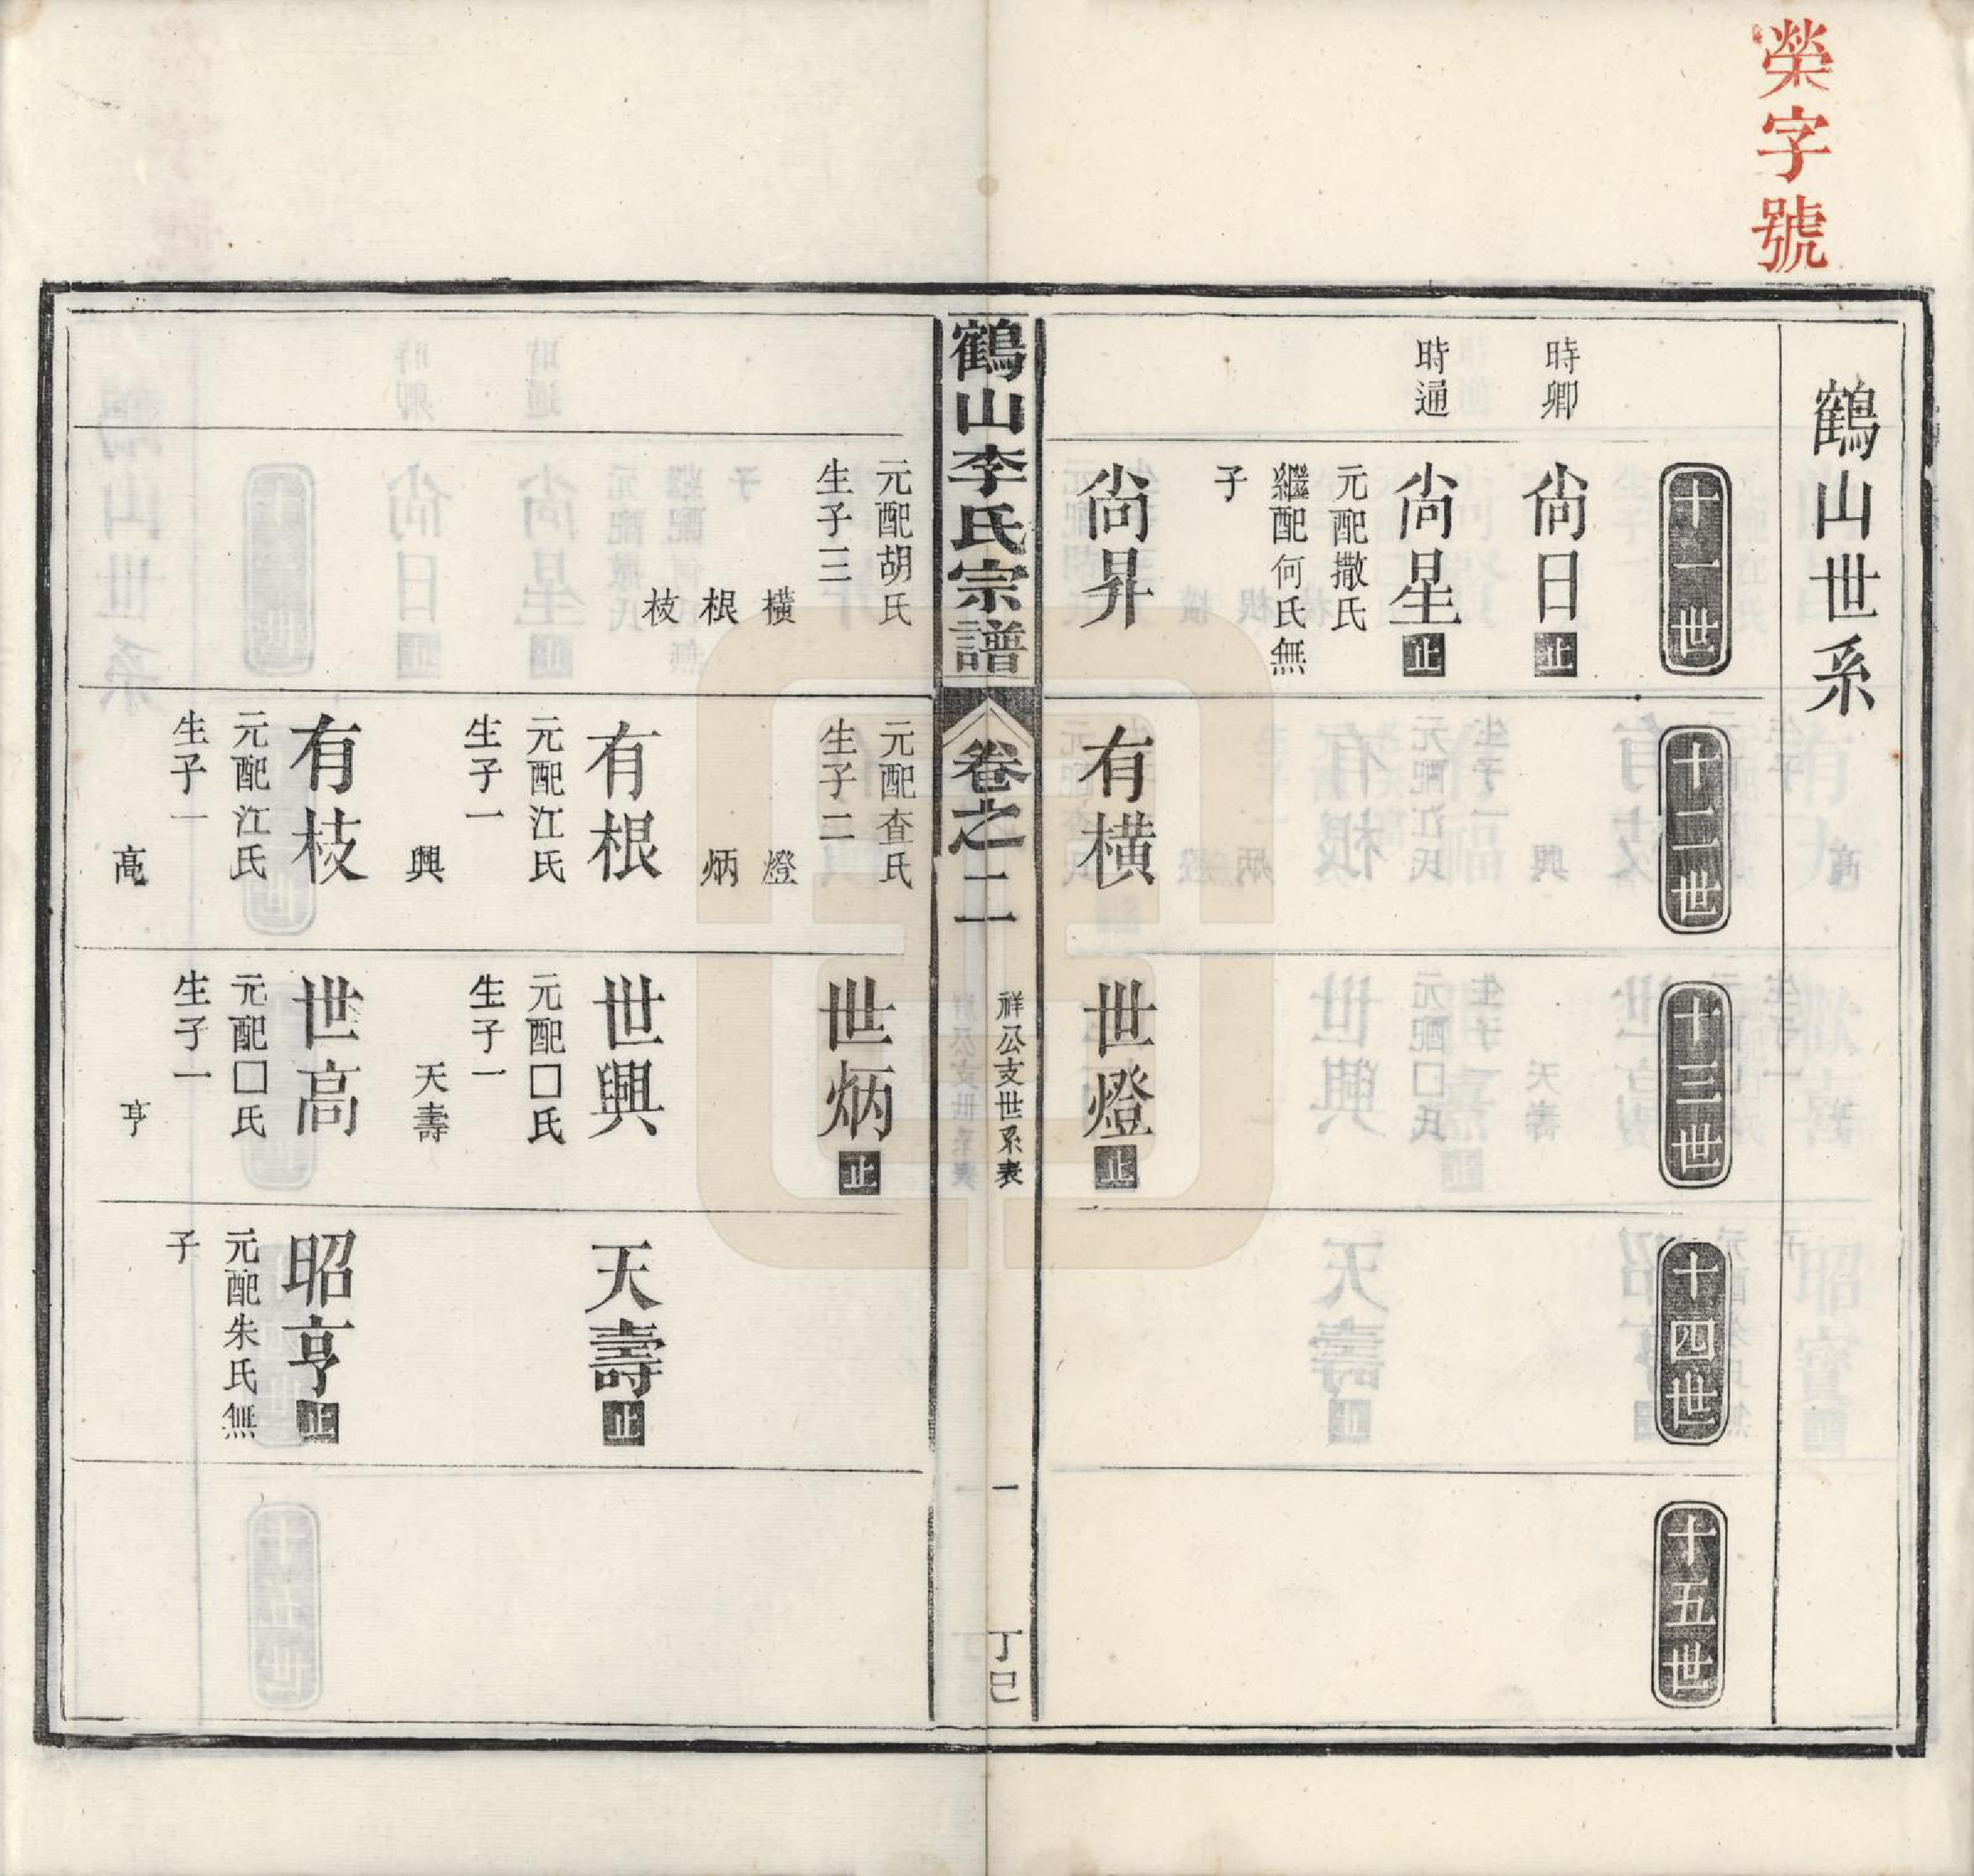 榮字號
鶴山世系
十一世
十二世
十三世
十四世
十五世
時卿
尙日止
時通
尙星止
元配撒氏
繼配何氏無
子
尙昇
有橫
世燈止
鶴山李氏宗譜
卷之二
祥公支世系表
一
丁巳
元配胡氏
生子三
橫
根
枝
元配查氏
生子二
燈
炳
世炳止
有根
元配江氏
生子一
興
世興
元配□氏
生子一
天壽
天壽止
有枝
元配江氏
生子一
高
世高
元配□氏
生子一
亨
昭亨止
元配朱氏無
子